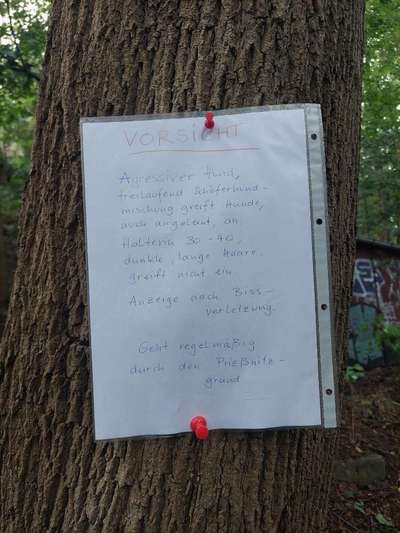 VORSICHT
Agressiver Hund,
freilaufend Schäferhund-
mischung greift Hunde,
auch angeleint, an
Halterin 30-40,
dunkle, lange Haare,
greift nicht ein.
Anzeige nach Biss-
verletzung.
Geht regelmäßig
durch den Prießnitz-
grund